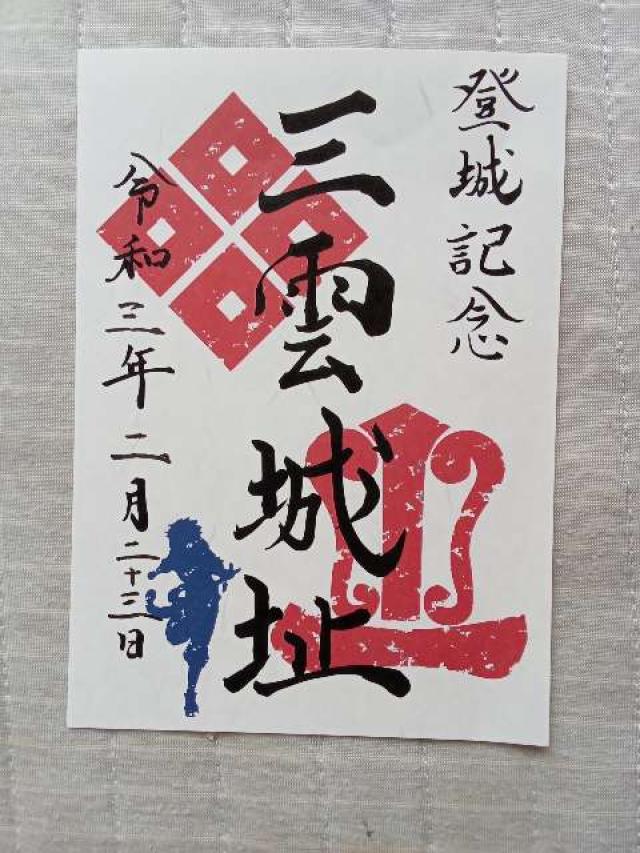 登城記念
三雲城址
令和三年二月二十三日